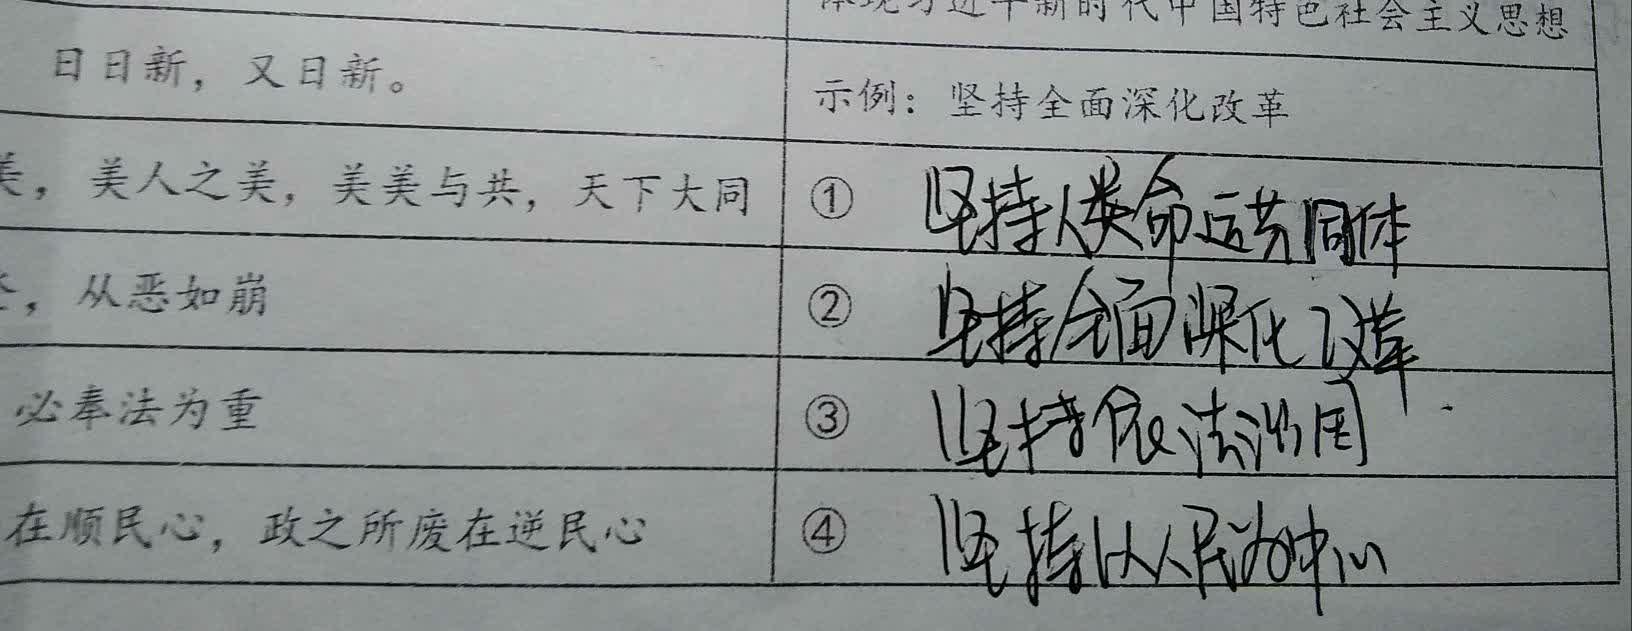 体现习近平新时代中国特色社会主义思想
日日新，又日新。
示例：坚持全面深化改革
美，美人之美，美美与共，天下大同
① 坚持人类命运共同体
，从恶如崩
② 坚持全面深化改革
必奉法为重
③ 坚持依法治国
在顺民心，政之所废在逆民心
④ 坚持以人民为中心